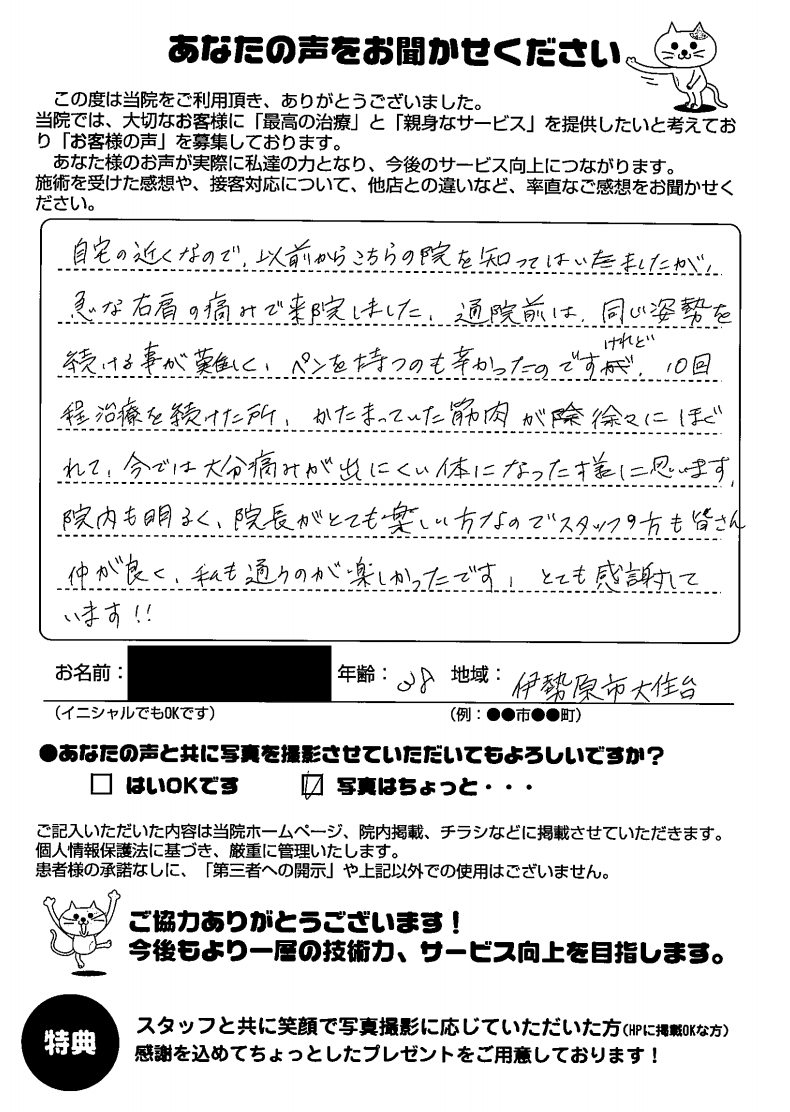 あなたの声をお聞かせください
この度は当院をご利用頂き、ありがとうございました。
当院では、大切なお客様に「最高の治療」と「親身なサービス」を提供したいと考えてお
り「お客様の声」を募集しております。
あなた様のお声が実際に私達の力となり、今後のサービス向上につながります。
施術を受けた感想や、接客対応について、他店との違いなど、率直なご感想をお聞かせく
ださい。
自宅の近くなので、以前からこちらの院を知ってはいましたが、
急な右肩の痛みで来院しました。通院前は、同じ姿勢を
続ける事が難しく、ペンを持つのも辛かったのですけれど、10回
程治療を続けた所、かたまっていた筋肉が徐々にほぐ
れて、今では大分痛みが出にくい体になった様に思います。
院内も明るく、院長がとても楽しい方なのでスタッフの方も皆さん
仲が良く、私も通うのが楽しかったです。とても感謝して
います!!
お名前: 年齢:28 地域: 伊勢原市大住台
(イニシャルでもOKです) (例:●●市●●町)
●あなたの声と共に写真を撮影させていただいてもよろしいですか?
□ はいOKです ☑ 写真はちょっと・・・
ご記入いただいた内容は当院ホームページ、院内掲載、チラシなどに掲載させていただきます。
個人情報保護法に基づき、厳重に管理いたします。
患者様の承諾なしに、「第三者への開示」や上記以外での使用はございません。
ご協力ありがとうございます!
今後もより一層の技術力、サービス向上を目指します。
特典
スタッフと共に笑顔で写真撮影に応じていただいた方(HPに掲載OKな方)
感謝を込めてちょっとしたプレゼントをご用意しております!